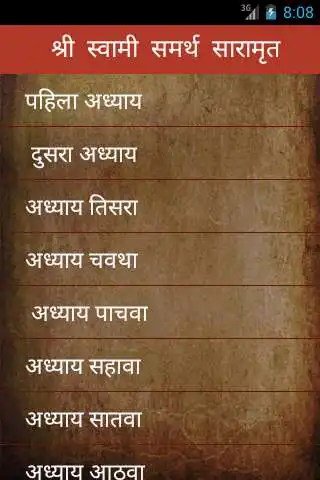 3G 8:08
श्री स्वामी समर्थ सारामृत
पहिला अध्याय
दुसरा अध्याय
अध्याय तिसरा
अध्याय चवथा
अध्याय पाचवा
अध्याय सहावा
अध्याय सातवा
अध्याय आठवा